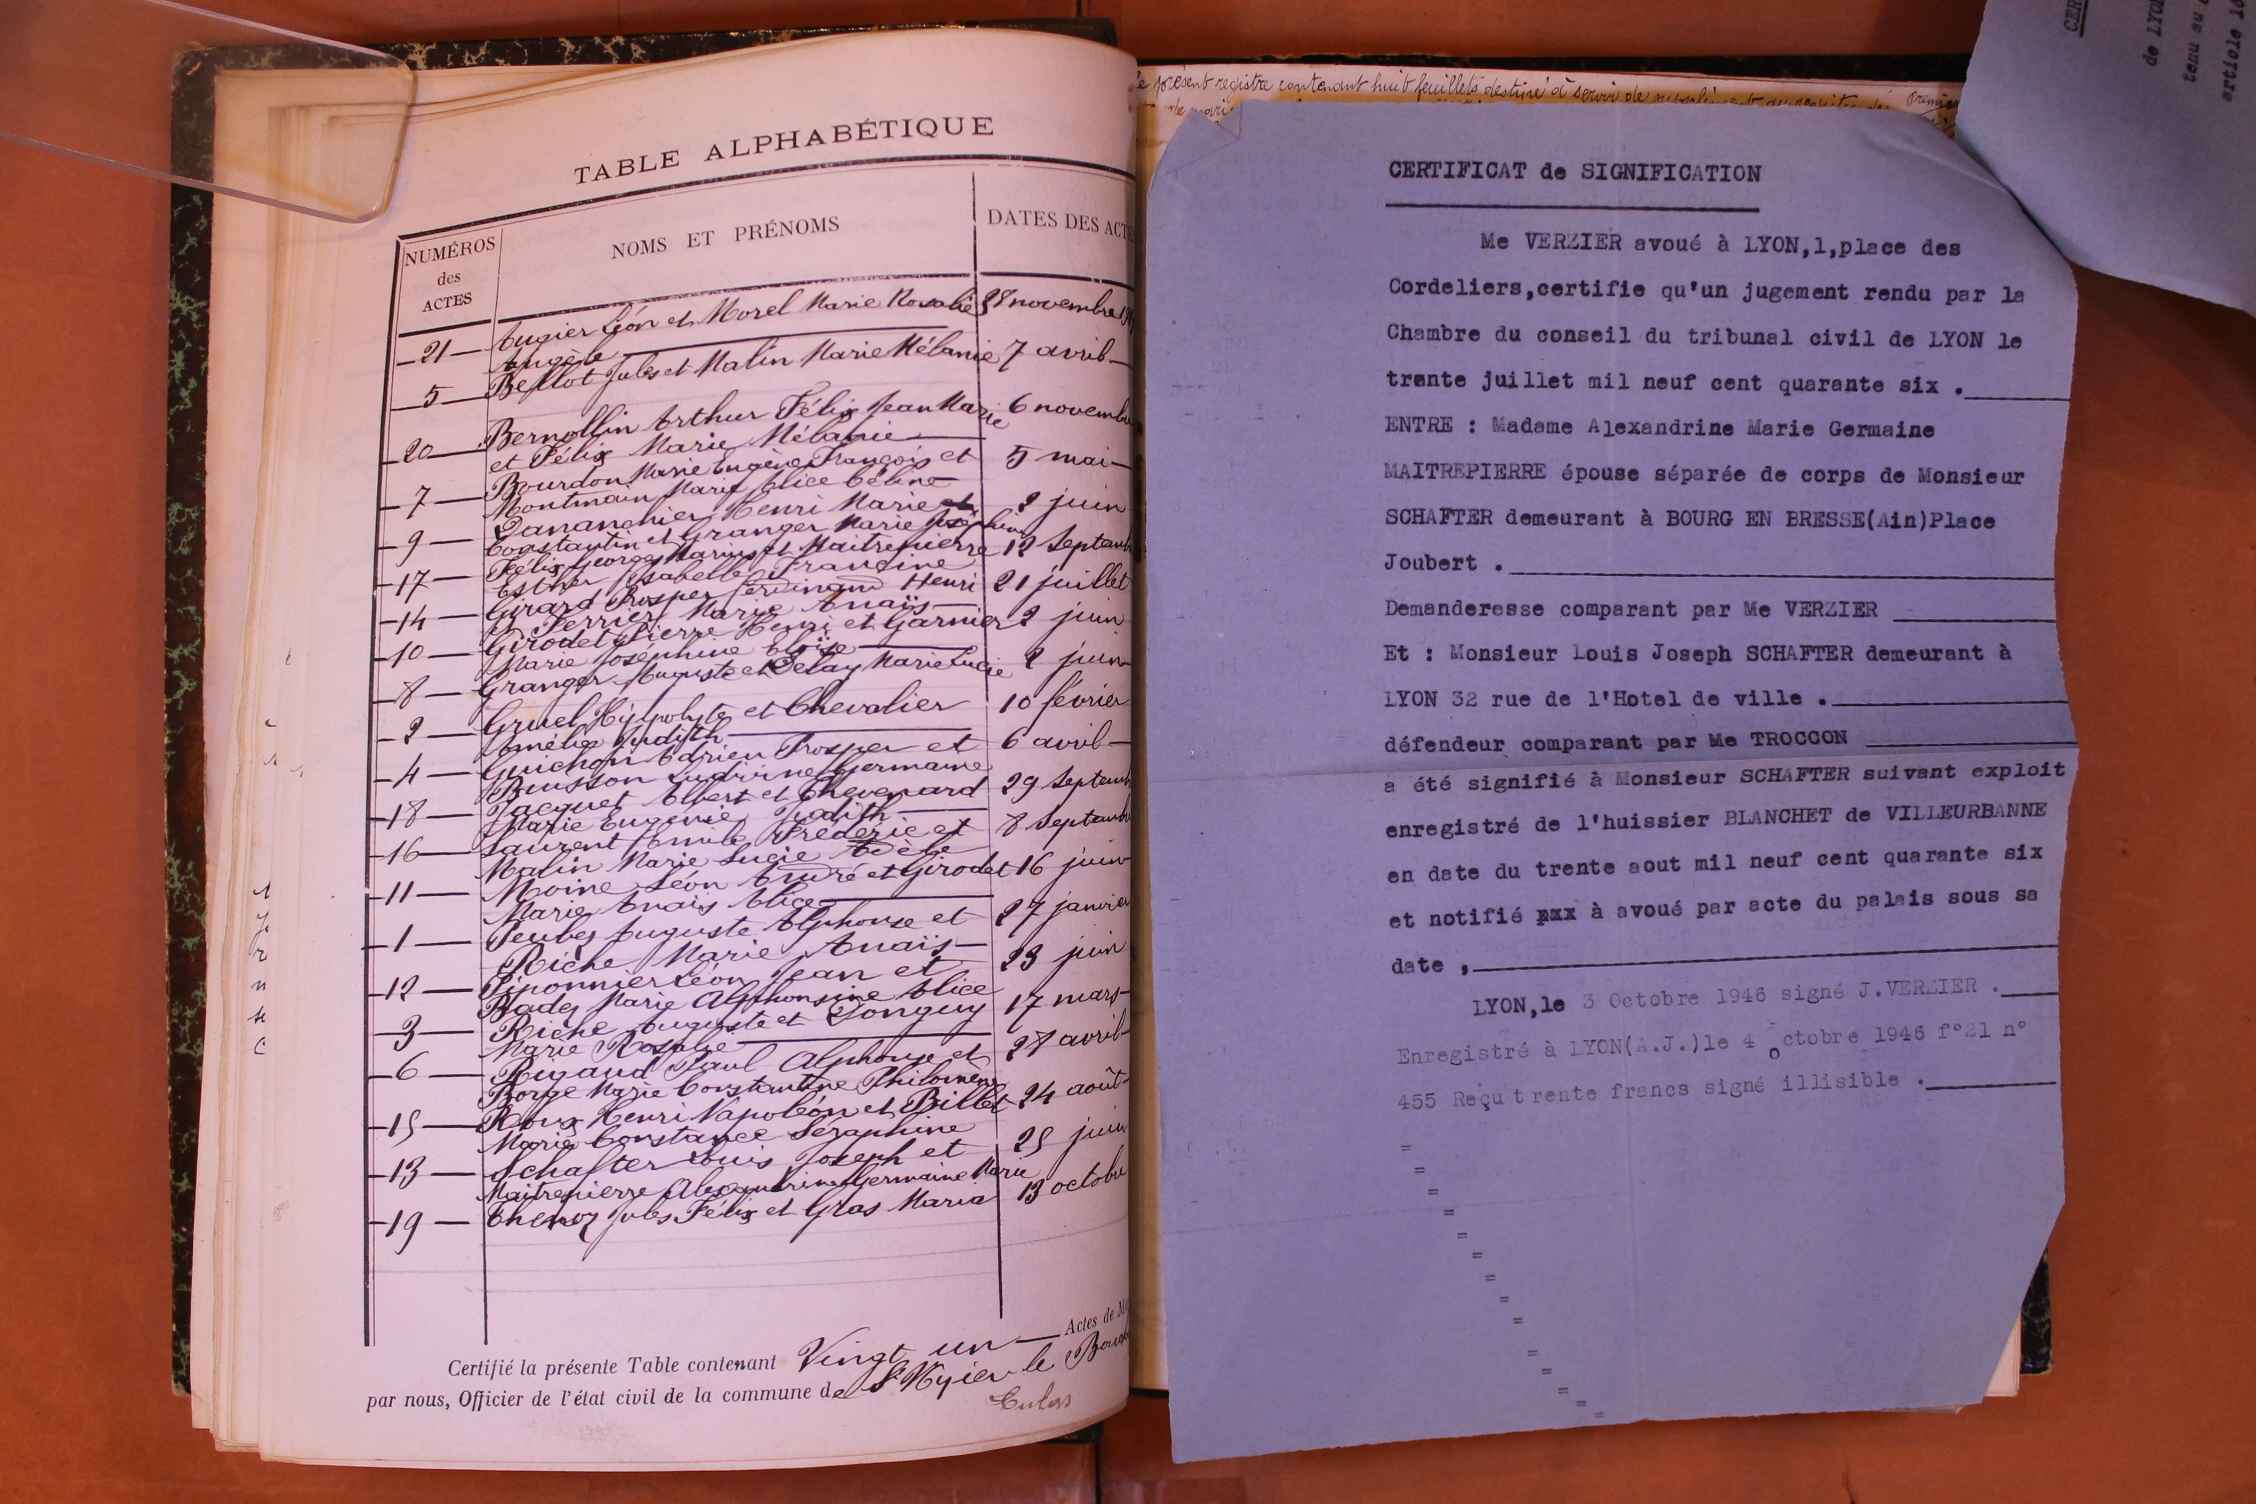 TABLE ALPHABÉTIQUE
NUMÉROS des ACTES
NOMS ET PRÉNOMS
DATES DES ACT
21 Augier Léon et Morel Marie Rosalie 28 novembre
Angèle
5 Bellot Jules et Malin Marie Mélanie 7 avril
20 Bernollin Arthur Félix Jean Marie 6 novembre
et Félix Marie Mélanie
7 Bourdon Marie Eugène François et 5 mai
Montmain Marie Alice Céline
9 Dananchier Henri Marie 2 juin
Constantin et Granger Marie Joséphine
17 Félix Georges Marius et Maitrepierre 12 Septemb
Esther Isabelle Francine
14 Girard Prosper Ferdinand Henri 21 juillet
Perrier Marie Anaïs
10 Girodet Pierre Henri et Garnier 2 juin
Marie Joséphine Eloïse
8 Granger Auguste et Marie Lucie 2 juin
2 Gruel Hippolyte et Chevalier 10 février
Amélie Judith
4 Guichon Adrien Prosper et 6 avril
Buisson Germaine
18 Jacquet Albert et Chevenard 29 Septemb
Marie Eugénie Judith
16 Laurent Emile Frédéric et 8 Septemb
Malin Marie Lucie Adèle
11 Moine Léon André et Girodet 16 juin
Marie Anaïs Alice
1 Auguste Alphonse et 27 janvier
Riche Marie Anaïs
12 Piponnier Léon Jean et 23 juin
Badez Marie Alphonsine Alice
3 Riche Auguste et Longuy 17 mars
Marie Rosalie
6 Rigaud Paul Alphonse et 27 avril
Borge Marie Constantine Philomène
15 Roux Henri Napoléon et Billet 24 août
Marie Constance Séraphine
13 Schafter Louis Joseph et 25 juin
Maitrepierre Alexandrine Germaine Marie
19 Thenoz Jules Félix et Gras Maria 13 octobre
Certifié la présente Table contenant Vingt un Actes de M
par nous, Officier de l'état civil de la commune de
le présent registre contenant huit feuillets destiné à servir de
CERTIFICAT de SIGNIFICATION
Me VERZIER avoué à LYON,1,place des
Cordeliers,certifie qu'un jugement rendu par la
Chambre du conseil du tribunal civil de LYON le
trente juillet mil neuf cent quarante six .
ENTRE : Madame Alexandrine Marie Germaine
MAITREPIERRE épouse séparée de corps de Monsieur
SCHAFTER demeurant à BOURG EN BRESSE(Ain)Place
Joubert .
Demanderesse comparant par Me VERZIER
Et : Monsieur Louis Joseph SCHAFTER demeurant à
LYON 32 rue de l'Hotel de ville .
défendeur comparant par Me TROCCON
a été signifié à Monsieur SCHAFTER suivant exploit
enregistré de l'huissier BLANCHET de VILLEURBANNE
en date du trente aout mil neuf cent quarante six
et notifié pxx à avoué par acte du palais sous sa
date ,
LYON,le 3 Octobre 1946 signé J.VERZIER .
Enregistré à LYON(A.J.)le 4 octobre 1946 f°21 n°
455 Reçu trente francs signé illisible .
CER
de LYO
tenu au
article 10